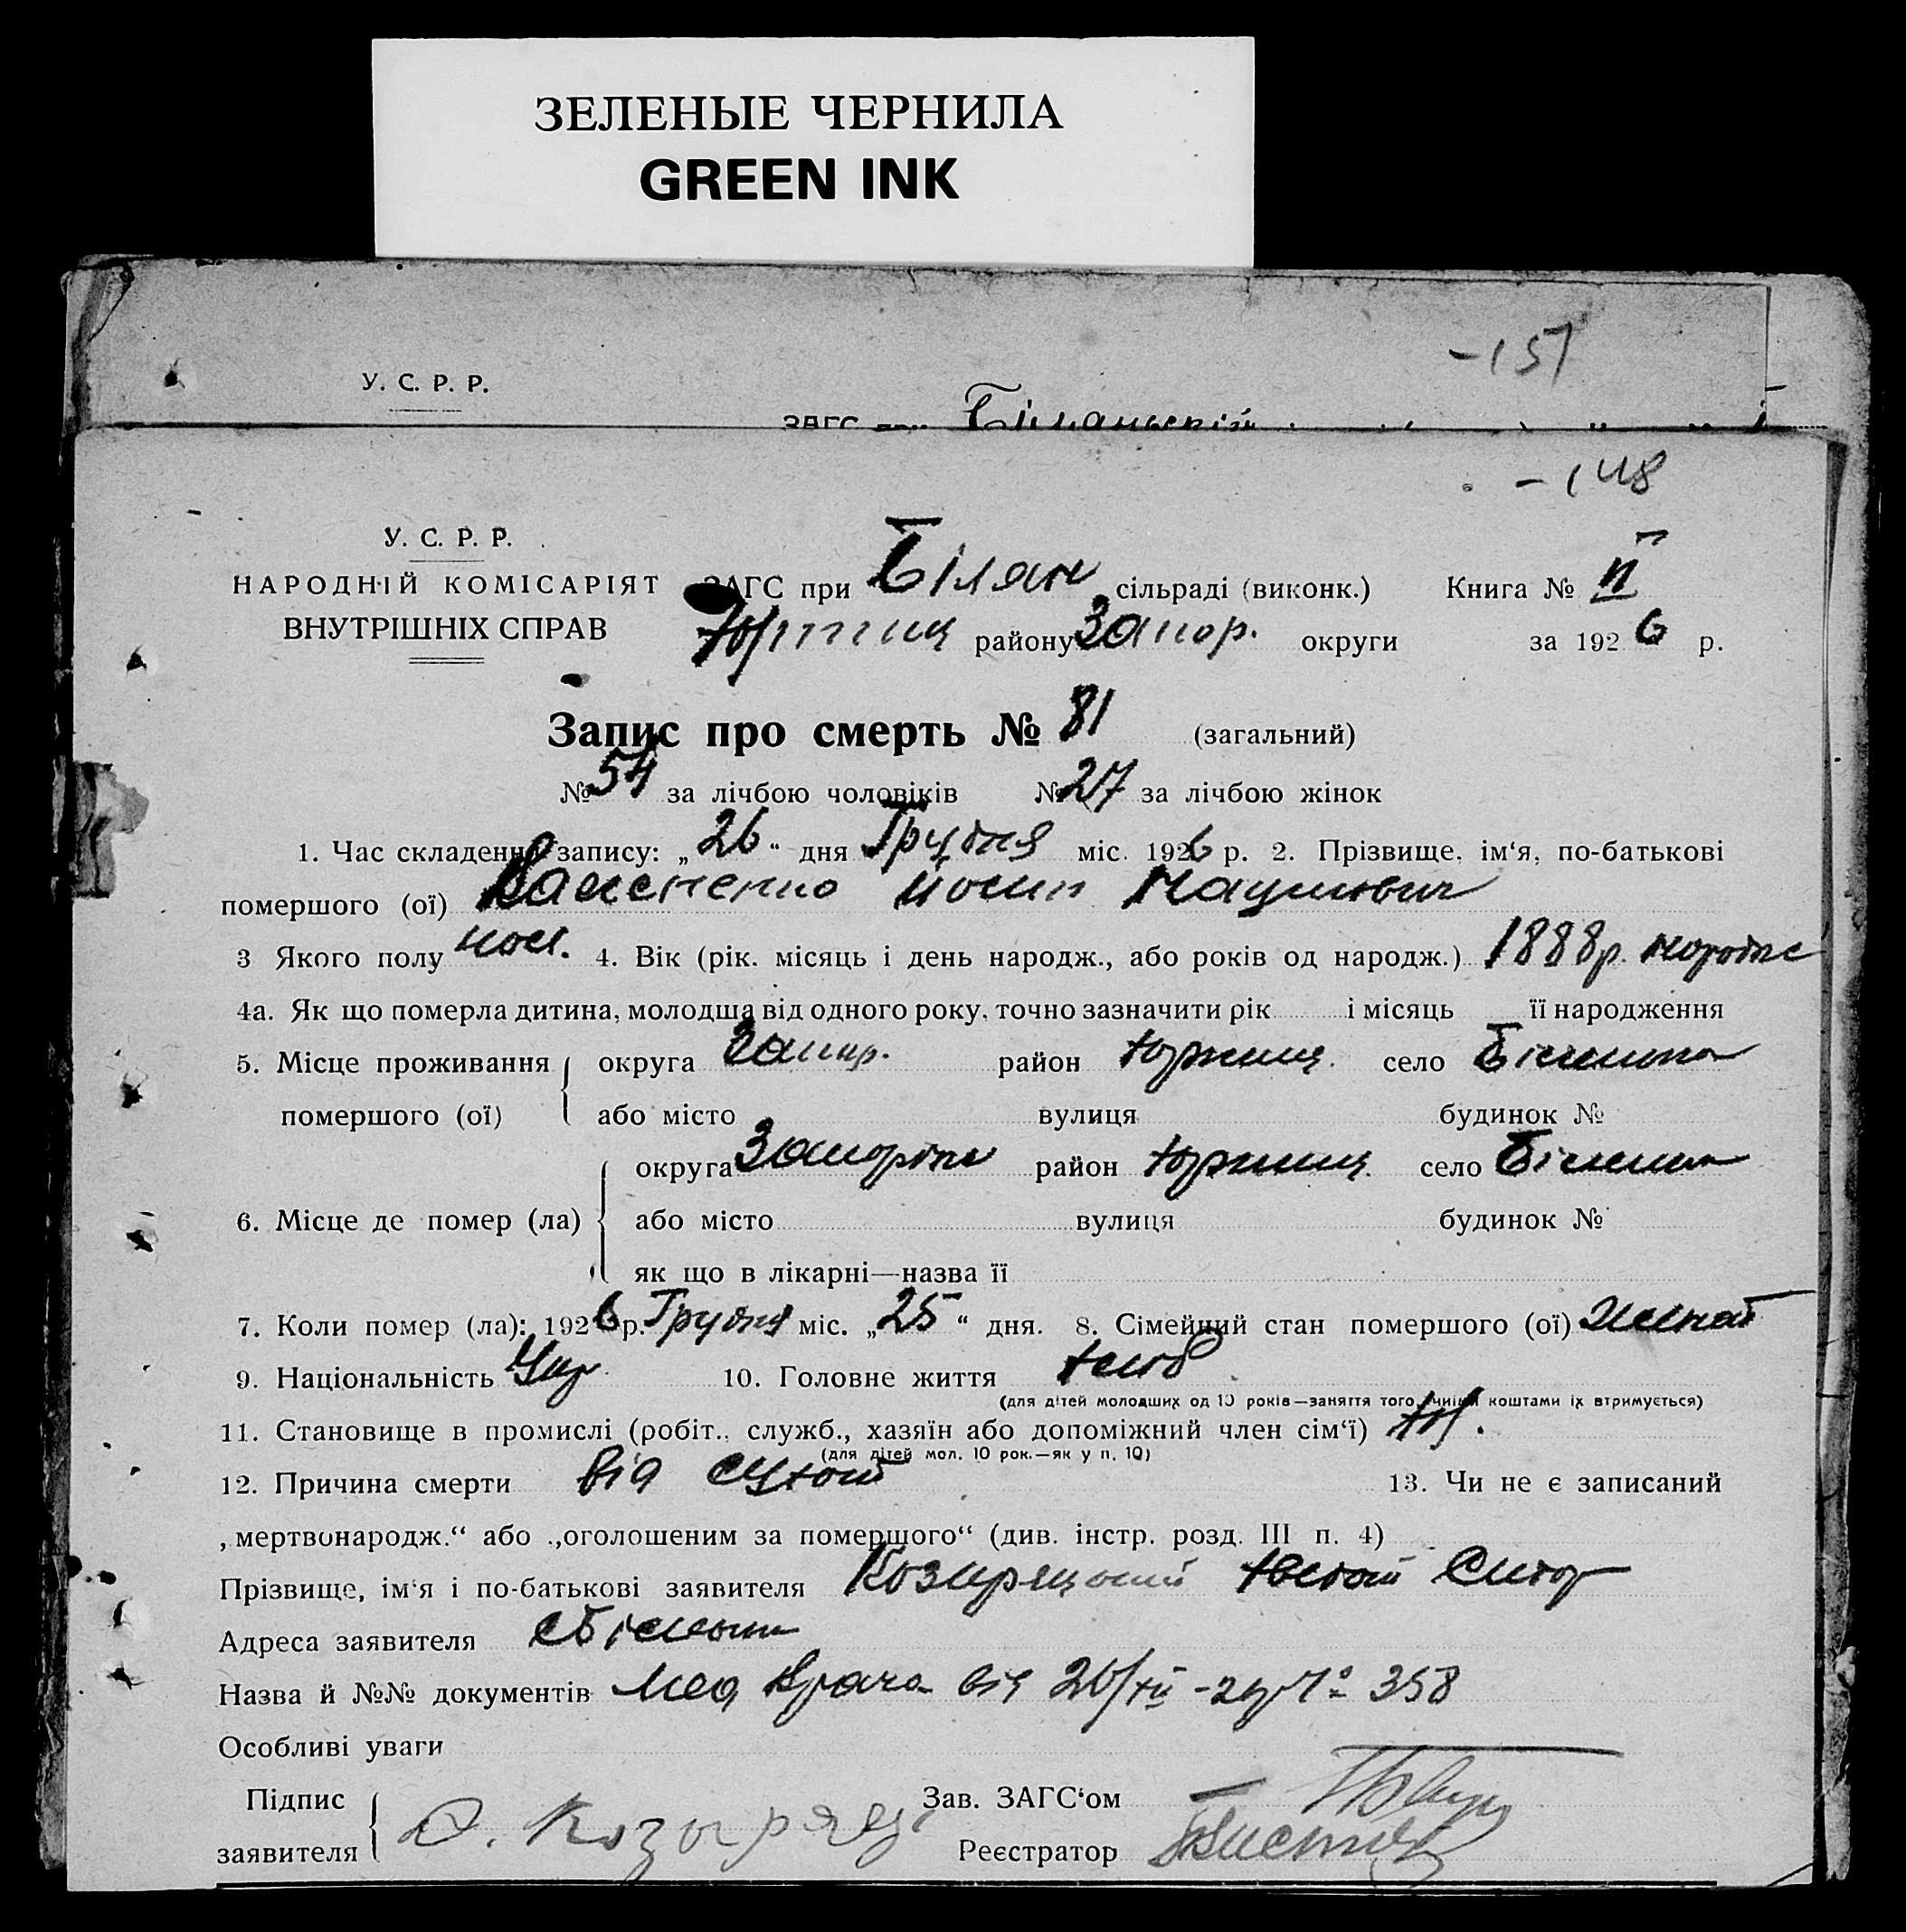 ЗЕЛЕНЫЕ ЧЕРНИЛА
GREEN INK
-151
У. С. Р. Р.
ЗАГС при
-148
У. С. Р. Р.
НАРОДНІЙ КОМІСАРІЯТ
ВНУТРІШНІХ СПРАВ
ЗАГС при Білян сільраді (виконк.) Книга № II
району Запор. округи за 1926 р.
Запис про смерть № 81 (загальний)
№ 54 за лічбою чоловіків № 27 за лічбою жінок
1. Час складення запису: „26“ дня Грудня міс. 1926 р. 2. Прізвище, ім‘я, по-батькові
помершого (ої) Йосип
3 Якого полу чол. 4. Вік (рік. місяць і день народж., або років од народж.) 1888 р.
4а. Як що померла дитина, молодша від одного року, точно зазначити рік і місяць її народження
5. Місце проживання округа Запор. район село
помершого (ої) або місто вулиця будинок №
округа район село
6. Місце де помер (ла) або місто вулиця будинок №
як що в лікарні—назва її
7. Коли помер (ла): 1926 р. Грудня міс. „25“ дня. 8. Сімейний стан помершого (ої) женат
9. Національність Укр 10. Головне життя хліб
(для дітей молодших од 10 років—заняття того, чиїми коштами їх втримується)
11. Становище в промислі (робіт., служб., хазяїн або допоміжний член сім‘ї)
(для дітей мол. 10 рок.—як у п. 10)
12. Причина смерти від сухот 13. Чи не є записаний
„мертвонародж.“ або „оголошеним за помершого“ (див. інстр. розд. III п. 4)
Прізвище, ім‘я і по-батькові заявителя
Адреса заявителя
Назва й №№ документів Мед Врача від 26/XII - 26 р № 358
Особливі уваги
Підпис Зав. ЗАГС‘ом
заявителя Реєстратор